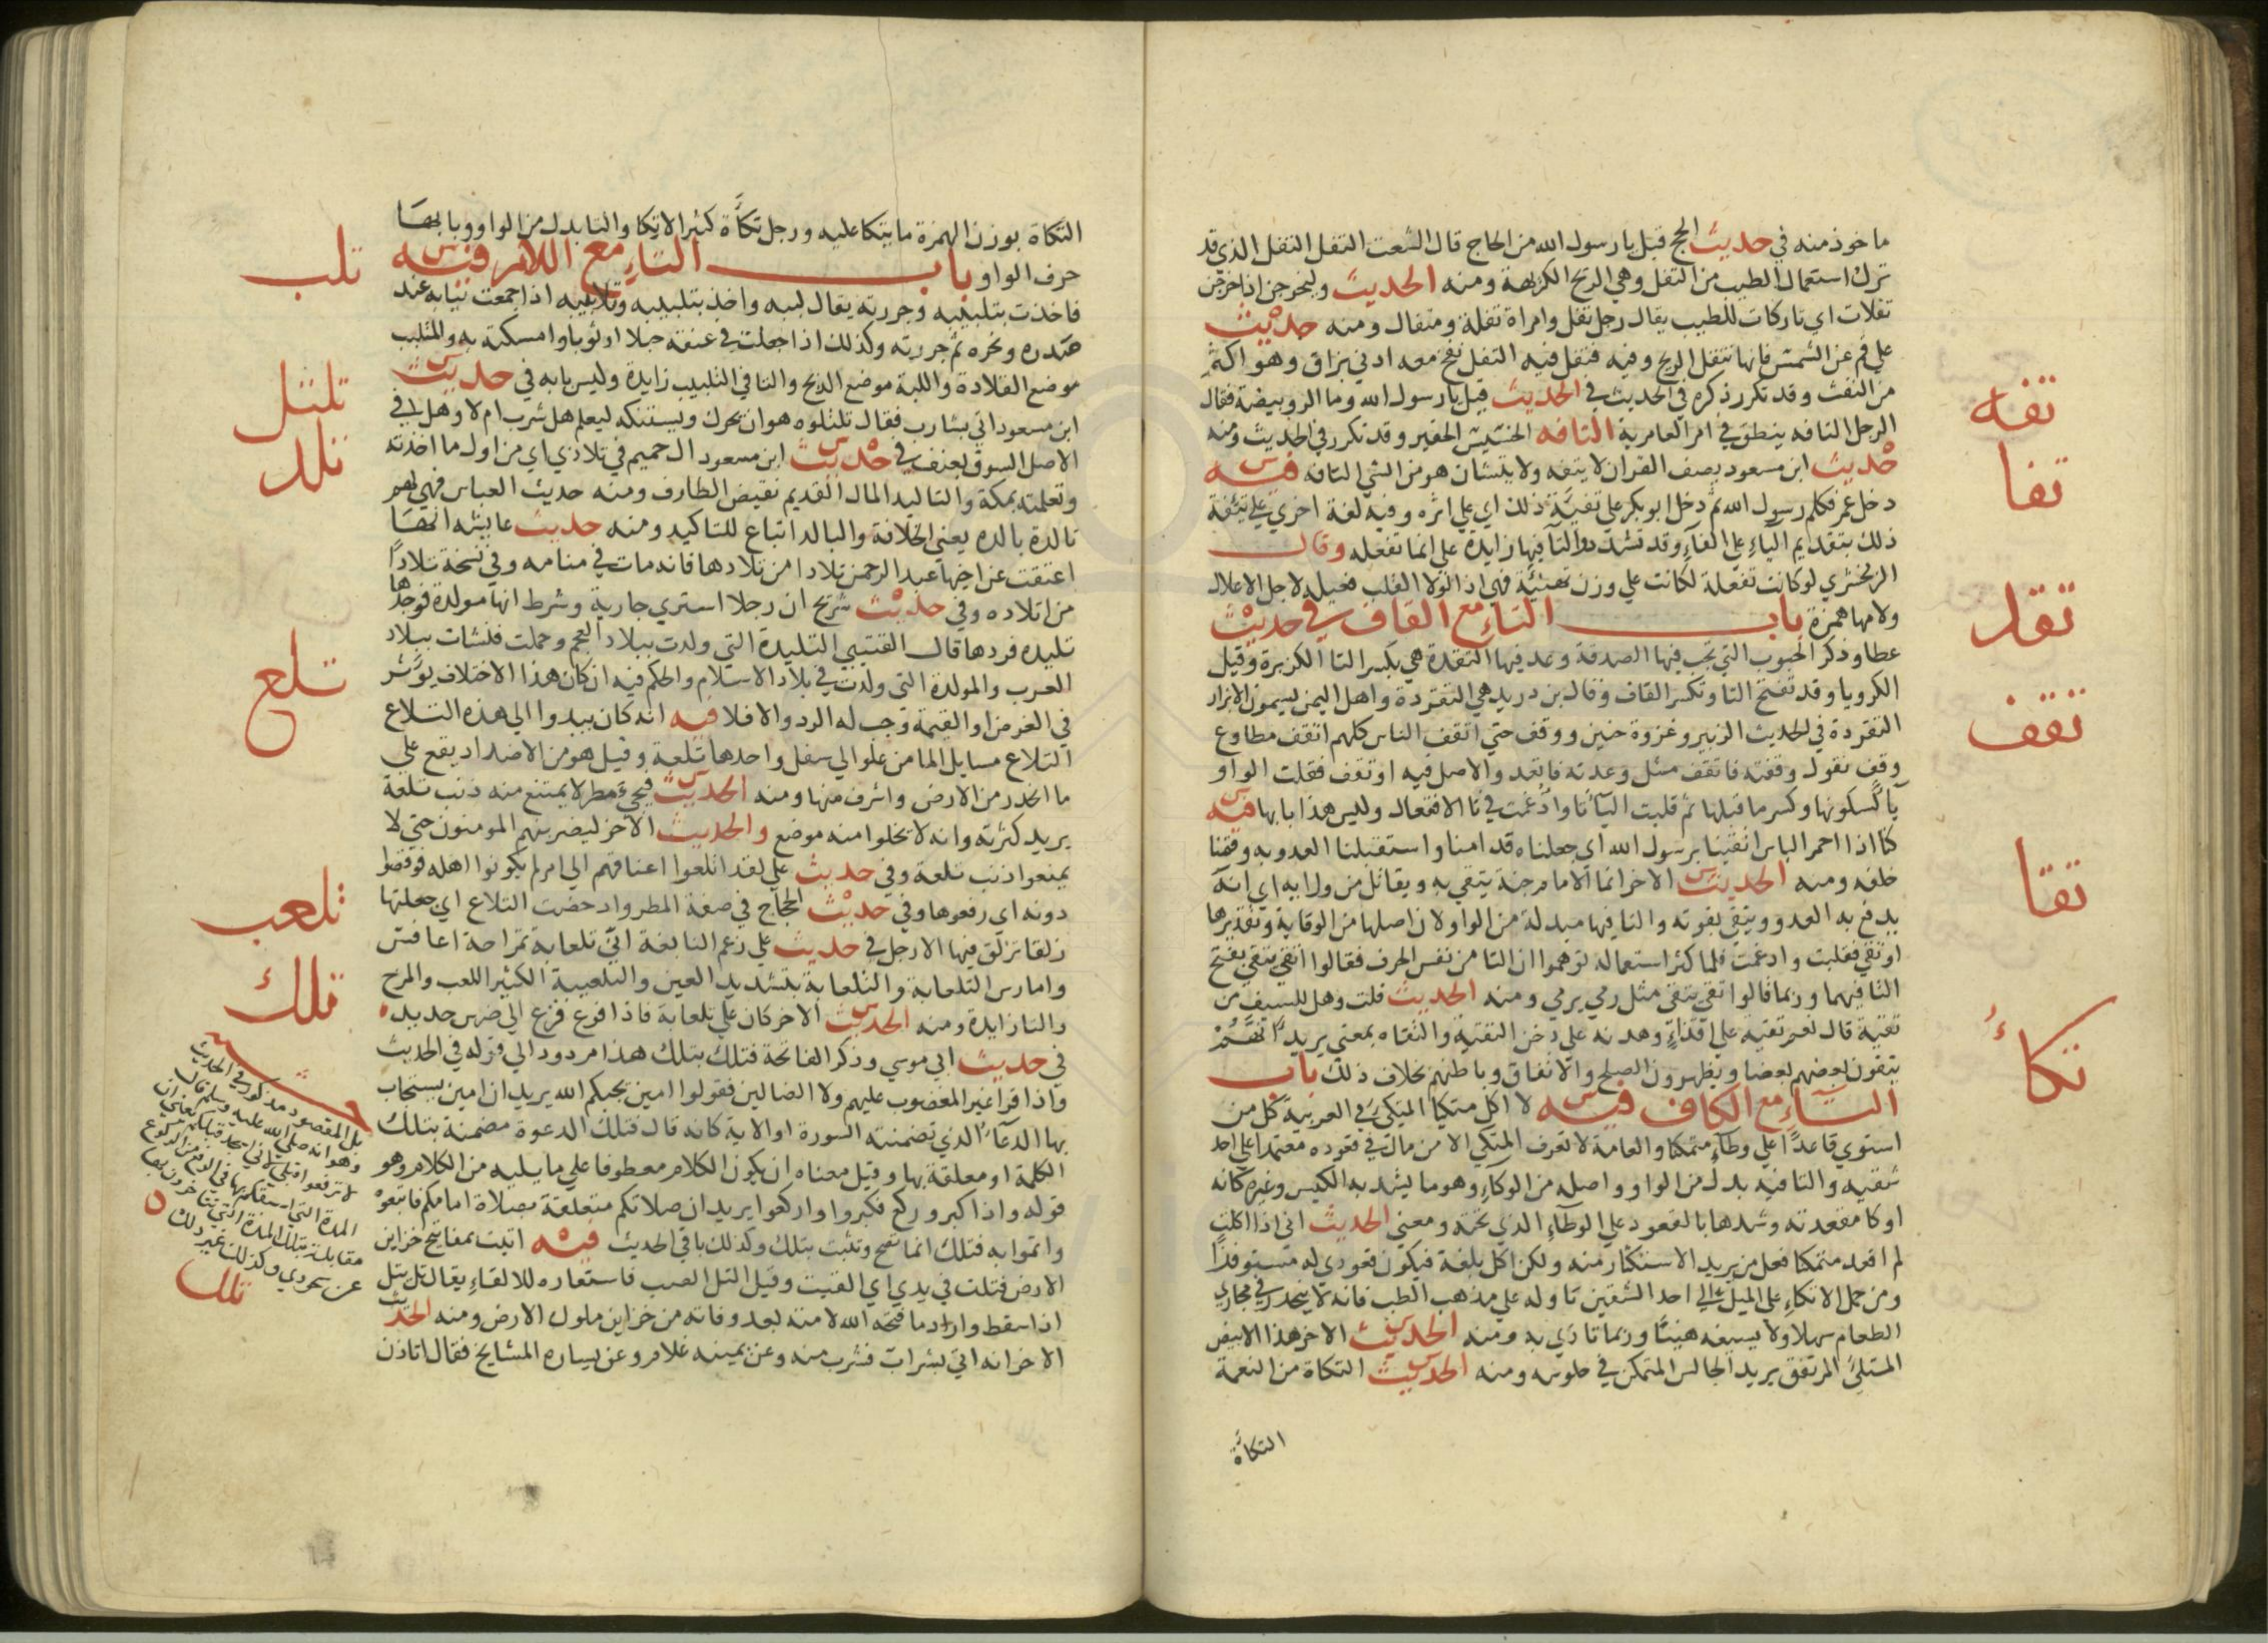 ماخوذ منه في حديث الحج قيل يا رسول الله من الحاج قال الشعث التفل التفل الذي قد
ترك استعمال الطيب من التفل وهي الريح الكريهة ومنه الحديث وليخرجن اذا خرجن
تفلات اي تاركات للطيب يقال رجل تفل وامراة تفلة ومتفال ومنه حديث
علي قم عن الشمس فانها تتفل الريح وفيه فتفل فيه التفل نفخ معه ادني بزاق وهو اكثر
من النفث وقد تكرر ذكره في الحديث في الحديث قيل يا رسول الله وما الرويبضة فقال
الرجل التافه ينطق في امر العامة التافه الخسيس الحقير وقد تكرر في الحديث ومنه
حديث ابن مسعود يصف القران لا يتفه ولا يتشان هو من الشي التافه فيه
دخل عمر فكلم رسول الله ثم دخل ابو بكر علي تفيئة ذلك اي علي اثره وفيه لغة اخري علي تئفة
ذلك بتقديم الياء علي الفاء وقد تشدد والتا فيها زايدة علي انها تفعلة وقال
الزمخشري لو كانت تفعلة لكانت علي وزن تهنئة فهي اذا لولا القلب فعيلة لاجل الاعلال
ولامها همزة باب التاء مع القاف في حديث
عطا وذكر الحبوب التي تجب فيها الصدقة وعد فيها التقدة هي بكسر التا الكزبرة وقيل
الكرويا وقد تفتح التا وتكسر القاف وقال بن دريد هي التقردة واهل اليمن يسمون الابزار
التقردة في الحديث الزبير وغزوة حنين ووقف حتي اتقف الناس كلهم اتقف مطاوع
وقف تقول وقفته فاتقف مثل وعدته فاتعد والاصل فيه اوتقف فقلبت الواو
يآ لسكونها وكسر ما قبلها ثم قلبت اليآ تا وادغمت في تا الافتعال وليس هذا بابها فيه
كنا اذا احمر الباس اتقينا برسول الله اي جعلناه قدامنا واستقبلنا العدو به وقمنا
خلفه ومنه الحديث الاخر انما الامام جنة يتقي به ويقاتل من ورابه اي انه
يدفع به العدو ويتقي بقوته والتا فيها مبدلة من الواو لان اصلها من الوقاية وتقديرها
اوتقي فقلبت وادغمت فلما كثر استعماله توهموا ان التا من نفس الحرف فقالوا اتقي يتقي بفتح
التا فيهما وربما قالوا تقي يتقي مثل رمي يرمي ومنه الحديث قلت وهل للسيف من
تقية قال نعم تقية علي اقذاء وهدنة علي دخن التقية والتقاه بمعني يريد انهم
يتقون بعضهم بعضا ويظهرون الصلح والاتفاق وباطنهم بخلاف ذلك باب
التاء مع الكاف فيه لا اكل متكيا المتكي في العربية كل من
استوي قاعدا علي وطاء متمكنا والعامة لا تعرف المتكي الا من مال في قعوده معتمدا علي احد
شقيه والتا فيه بدل من الواو واصله من الوكاء وهو ما يشد به الكيس وغيره كانه
اوكا مقعدته وشدها بالقعود علي الوطاء الذي تحته ومعني الحديث اني اذا اكلت
لم اقعد متمكنا فعل من يريد الاستكثار منه ولكن اكل بلغة فيكون قعودي له مستوفزا
ومن حمل الاتكاء علي الميل الي احد الشقين تاوله علي مذهب الطب فانه لا ينحدر في مجاري
الطعام سهلا ولا يسيغه هنيئا وربما تاذي به ومنه الحديث الاخر هذا الابيض
المتكئ المرتفق يريد الجالس المتمكن في جلوسه ومنه الحديث التكاة من النعمة
التكأة
تفه
تفا
تقد
تقف
تقا
تكأ
التكاة بوزن الهمزة ما يتكا عليه ورجل تكأة كثير الاتكا والتا بدل من الواو وبابها
حرف الواو باب التاء مع اللام فيه
فاخذت بتلبيبه وجررته يقال لببه واخذ بتلبيبه وتلابيبه اذا جمعت ثيابه عند
صدره ونحره ثم جررته وكذلك اذا جعلت في عنقه حبلا او ثوبا وامسكته به والمتلبب
موضع القلادة واللبة موضع الذبح والتا في التلبيب زايدة وليس بابه في حديث
ابن مسعود اتي بشارب فقال تلتلوه هو ان يحرك ويستنكه ليعلم هل شرب ام لا وهو في
الاصل السوق بعنف في حديث ابن مسعود ال حميم في تلادي اي من اول ما اخذته
وتعلمته بمكة والتاليد المال القديم نقيض الطارف ومنه حديث العباس فهي لهم
تالدة بالدة يعني الخلافة والبالد اتباع للتاكيد ومنه حديث عايشه انها
اعتقت عن اخيها عبد الرحمن تلادا من تلادها فانه مات في منامه وفي نسخة تلادا
من اتلاده وفي حديث شريح ان رجلا استري جارية وشرط انها مولدة فوجدها
تليدة فردها قال القتيبي التليدة التي ولدت ببلاد العجم وحملت فنشات ببلاد
العرب والمولدة التي ولدت في بلاد الاسلام والحكم فيه ان كان هذا الاختلاف يوثر
في الغرض او القيمة وجب له الرد والا فلا فيه انه كان يبدوا الي هذه التلاع
التلاع مسايل الما من علو الي سفل واحدها تلعة وقيل هو من الاضداد يقع علي
ما انحدر من الارض واشرف منها ومنه الحديث فيجيء مطر لا يمتنع منه ذنب تلعة
يريد كثرته وانه لا يخلوا منه موضع والحديث الاخر ليضربنهم المومنون حتي لا
يمنعوا ذنب تلعة وفي حديث علي لقد اتلعوا اعناقهم الي امر لم يكونوا اهله فوقصوا
دونه اي رفعوها وفي حديث الحجاج في صفة المطر وادحضت التلاع اي جعلتها
زلقا تزلق فيها الارجل في حديث علي زعم النابغة اني تلعابة تمراحة اعافس
وامارس التلعابة والتلعابة بتشديد العين والتلعيبة الكثير اللعب والمرح
والتا زايدة ومنه الحديث الاخر كان علي تلعابة فاذا فزع فزع الي ضرس حديد
في حديث ابي موسي وذكر الفاتحة فتلك بتلك هذا مردود الي قوله في الحديث
واذا قرا غير المغضوب عليهم ولا الضالين فقولوا امين يحبكم الله يريد ان امين يستجاب
بها الدعآ الذي تضمنته السورة او الاية كانه قال فتلك الدعوة مضمنة بتلك
الكلمة او معلقة بها وقيل معناه ان يكون الكلام معطوفا علي ما يليه من الكلام وهو
قوله واذا كبر وركع فكبروا واركعوا يريد ان صلاتكم متعلقة بصلاة امامكم فاتبعوه
واتموا به فتلك انما تصح وتثبت بتلك وكذلك باقي الحديث فيه اتيت بمفاتيح خزاين
الارض فتلت في يدي اي القيت وقيل التل الصب فاستعاره للالقاء يقال تل يتل
اذا سقط واراد ما فتحه الله لامته بعد وفاته من خزاين ملوك الارض ومنه الحديث
الاخر انه اتي بشراب فشرب منه وعن يمينه غلام وعن يساره المشايخ فقال اتاذن
تلب
تلتل
تلد
تلع
تلعب
تلك
بل المقصود مذكور في الحديث
وهو انه صلي الله عليه وسلم قال
لا ترفعوا قبلي
المدة التي
مقابلة بتلك المدة التي تتاخرون بها
عن سجودي وكذلك غير ذلك
تلل